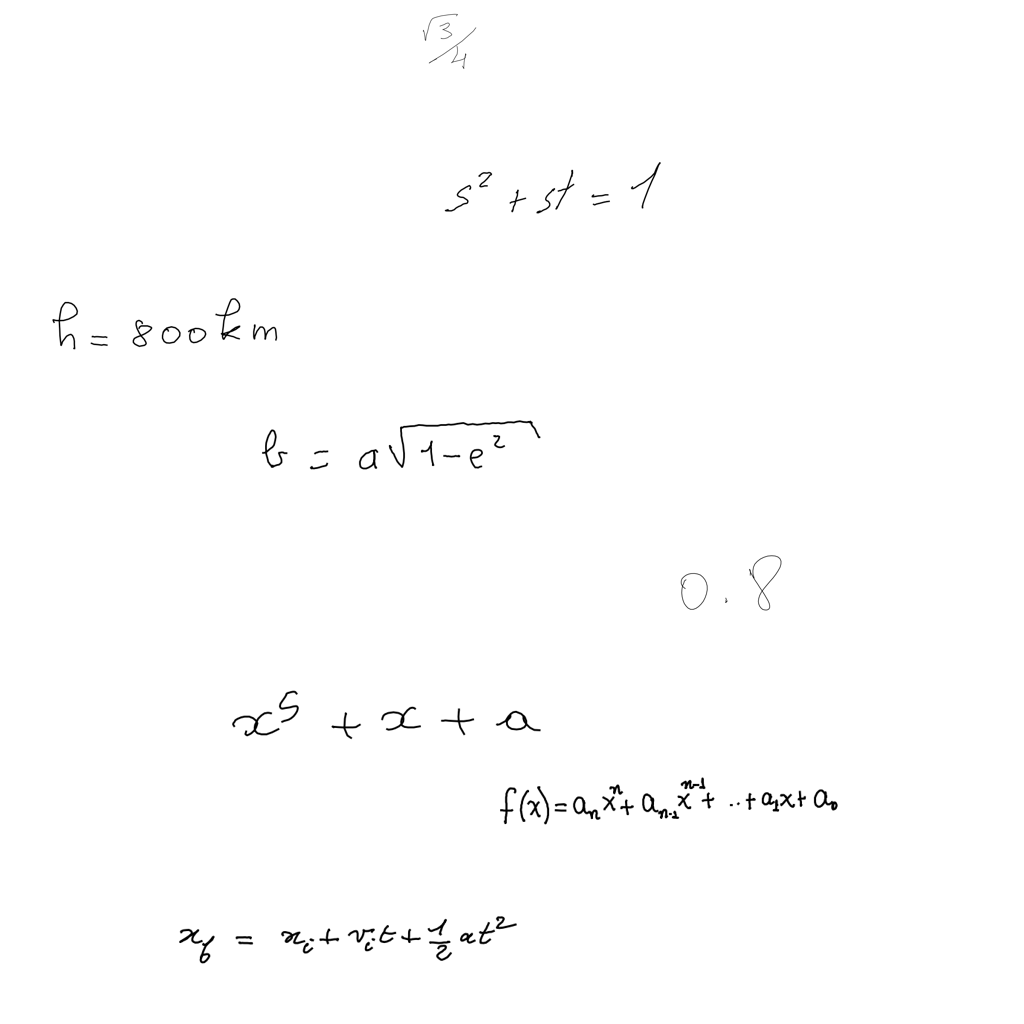 √3/4
s² + st = 1
h = 800 km
b = a√(1-e²)
0.8
x⁵ + x + a
f(x) = aₙxⁿ + aₙ₋₁xⁿ⁻¹ + .. + a₁x + a₀
x_f = x_i + v_i t + 1/2 at²